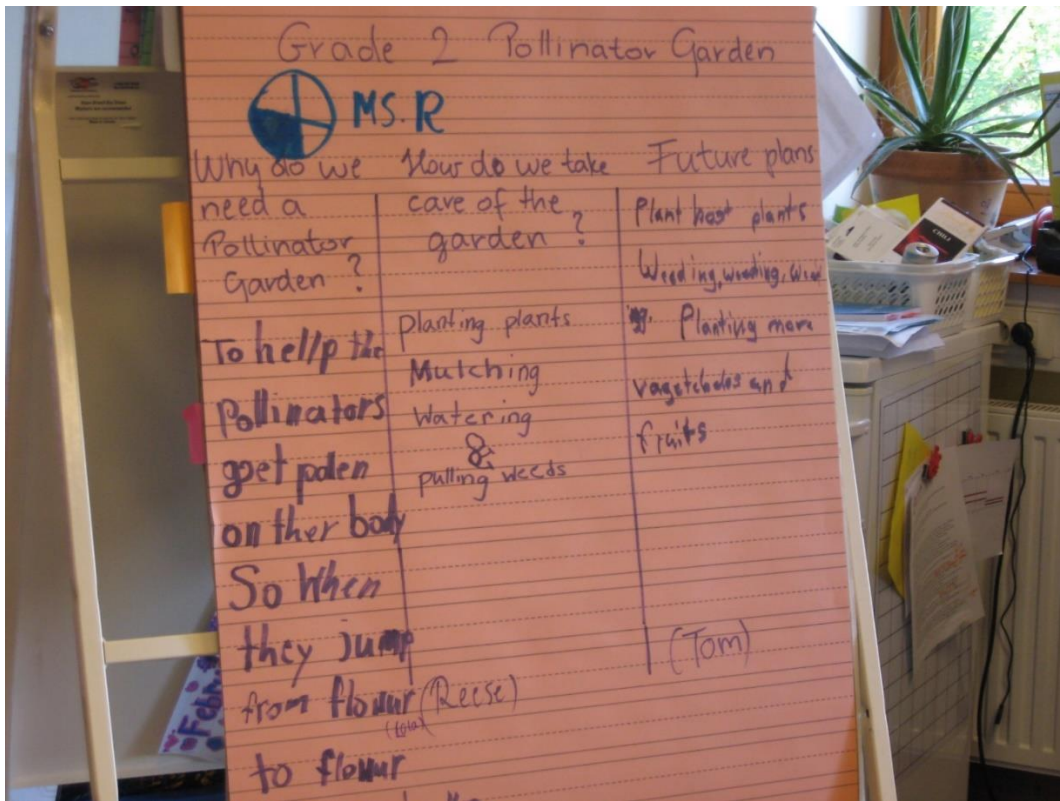 Grade 2 Pollinator Garden
MS. R
Why do we
need a
Pollinator
Garden?
To hellp the
Pollinators
get polen
on ther body
So When
they jump
from flowur
to flowur
How do we take
care of the
garden?
Planting plants
Mulching
Watering
&
pulling weeds
(Reese)
Future plans
Plant host plants
Weeding, weeding, weed
ing. Planting more
vagetebales and
fruits
(Tom)
CHILI